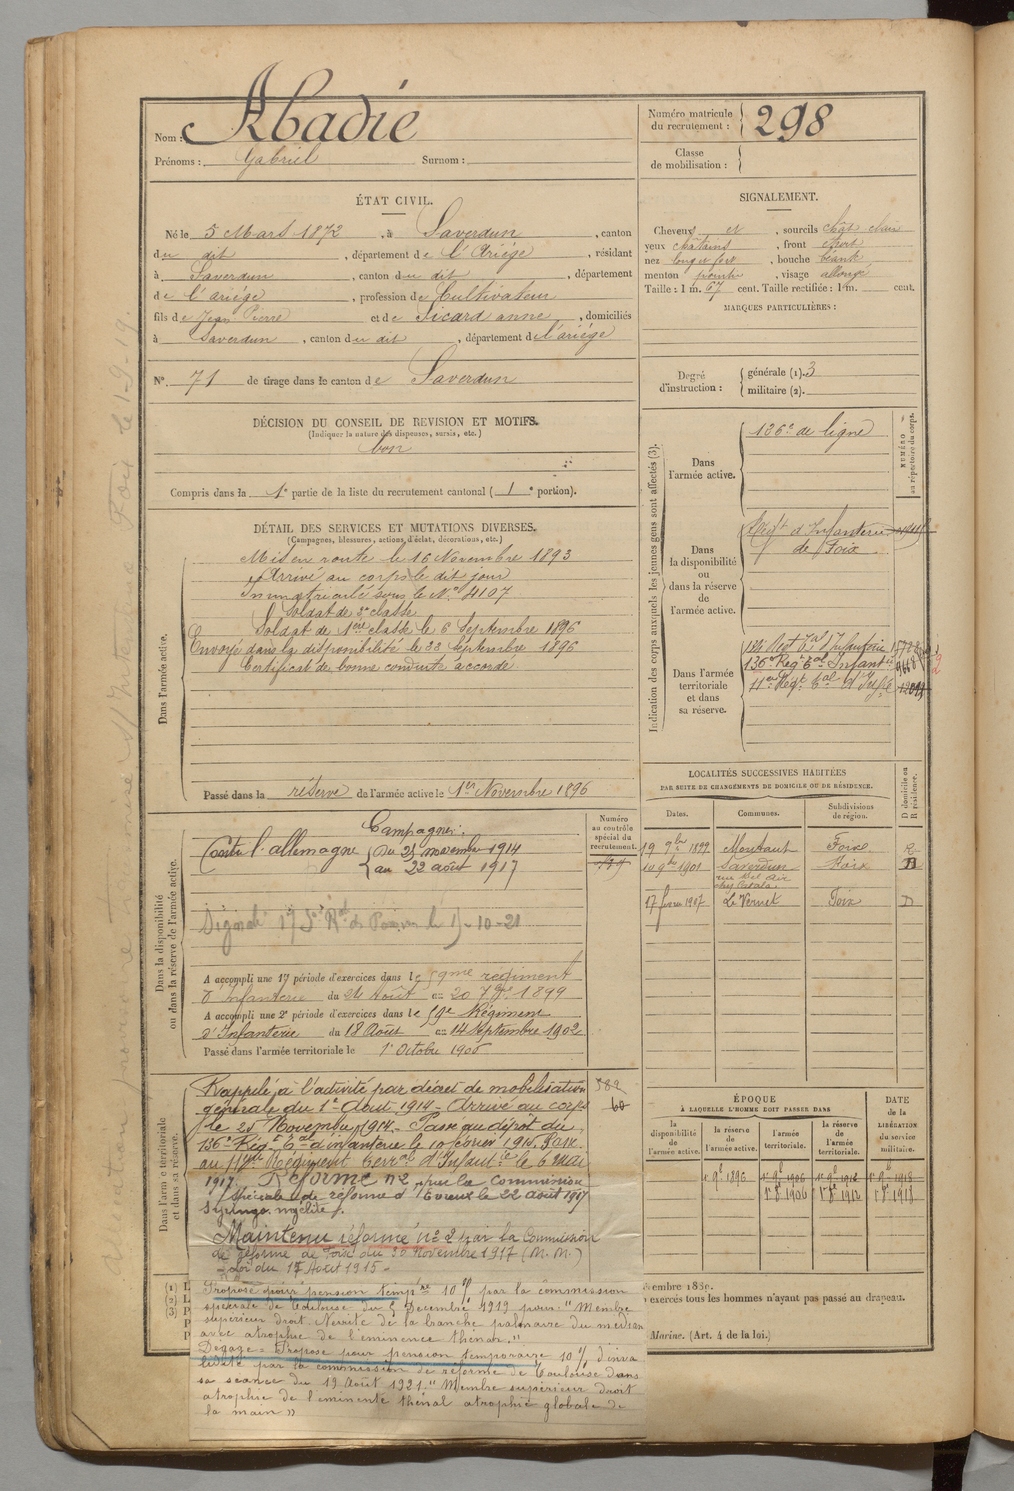 Nom : Abadie
Prénoms : Gabriel Surnom :
Numéro matricule du recrutement : 298
Classe de mobilisation :
ÉTAT CIVIL.
Né le 5 Mars 1872, à Saverdun, canton
du dit, département de l'Ariège, résidant
à Saverdun, canton du dit, département
de l'ariége, profession de Cultivateur
fils de Jean Pierre et de Sicard anne, domiciliés
à Saverdun, canton du dit, département de l'ariége
N°. 71 de tirage dans le canton de Saverdun
SIGNALEMENT.
Cheveux et, sourcils chât clair
yeux châtains, front court
nez long et fort, bouche béante
menton pointu, visage allongé
Taille : 1 m. 67 cent. Taille rectifiée : 1 m. cent.
MARQUES PARTICULIÈRES :
Degré d'instruction : générale (1). 3
militaire (2).
DÉCISION DU CONSEIL DE REVISION ET MOTIFS.
(Indiquer la nature des dispenses, sursis, etc.)
bon
Compris dans la 1e partie de la liste du recrutement cantonal (1e portion).
DÉTAIL DES SERVICES ET MUTATIONS DIVERSES.
(Campagnes, blessures, actions, d'éclat, décorations, etc.)
Dans l'armée active.
Mis en route le 16 Novembre 1893
Arrivé au corps le dit jour
Immatriculé sous le N° 4107
Soldat de 2e classe
Soldat de 1ère classe le 6 Septembre 1896
Envoyé dans la disponibilité le 22 Septembre 1896
Certificat de bonne conduite accordé
Passé dans la réserve de l'armée active le 1er Novembre 1896
Indication des corps auxquels les jeunes gens sont affectés (3).
NUMÉRO au répertoire du corps.
Dans l'armée active.
126e de ligne
Dans la disponibilité ou dans la réserve de l'armée active.
Regt d'Infanterie
de Foix
Dans l'armée territoriale et dans sa réserve.
136e Regt Eal Infanie
11e Regt Eal d'Infie
LOCALITÉS SUCCESSIVES HABITÉES
PAR SUITE DE CHANGEMENTS DE DOMICILE OU DE RÉSIDENCE.
Dates. Communes. Subdivisions de région. D domicile ou R résidence.
19 9bre 1899 Montaut Foix R
10 9bre 1901 Saverdun Foix D
17 février 1907 Le Vernet Foix D
Dans la disponibilité ou dans la réserve de l'armée active.
Numéro au contrôle spécial du recrutement.
Campagne :
Contre l'allemagne du 25 novembre 1914
au 22 août 1917
A accompli une 1e période d'exercices dans le 59me régiment
d'Infanterie du 24 Août au 20 7bre 1899
A accompli une 2e période d'exercices dans le 59e Régiment
d'Infanterie du 18 Août au 14 Septembre 1902
Passé dans l'armée territoriale le 1er Octobre 1906
Dans l'armée territoriale et dans sa réserve.
Rappelé à l'activité par décret de mobilisation
générale du 1er Aout 1914 - Arrivé au corps
le 25 Novembre 1914. Passé au dépôt du
136e Régt Eal d'infanterie le 10 février 1915. Passé
au 11eme Régiment Terral d'Infantie le 6 mai
1917. Réformé n°2 par la commission
spéciale de réforme d'Evreux le 22 août 1917
Syringo-myélite.
Maintenu réformé n° 2 par la Commission
de réforme de Foix du 30 Novembre 1917 (M.M.)
- Loi du 17 Aout 1915 -
Proposé pour pension tempre 10 % par la commission
spéciale de Toulouse du 5 Decembre 1919 pour : "Membre
supérieur droit. Nevrite de la banche palmaire du médian
avec atrophie de l'éminence thénar."
Degagé = Proposé pour pension temporaire 10 % d'inva
lidité par la commission de réforme de Toulouse dans
sa séance du 19 Août 1921 "Membre supérieur droit
atrophie de l'eminente thénal atrophie globale de
la main"
ÉPOQUE
À LAQUELLE L'HOMME DOIT PASSER DANS
la disponibilité de l'armée active. la réserve de l'armée active. l'armée territoriale. la réserve de l'armée territoriale. DATE de la LIBÉRATION du service militaire.
1er 9b 1896 1er 9b 1906 1er 9b 1912 1er 9b 1918
1er 8b 1906 1er 8b 1912 1er 8b 1918
exercés tous les hommes n'ayant pas passé au drapeau.
Marine. (Art. 4 de la loi.)